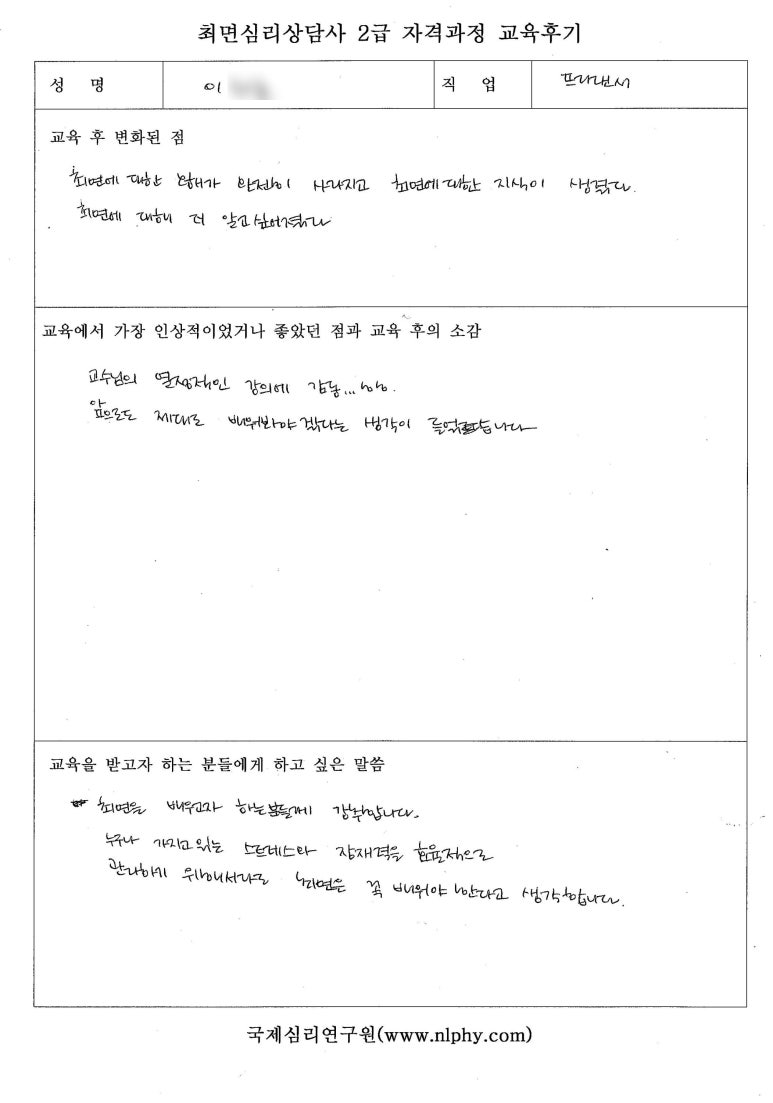 최면심리상담사 2급 자격과정 교육후기
성 명 이 직 업 프리랜서
교육 후 변화된 점
최면에 대한 오해가 완전히 사라지고 최면에 대한 지식이 생겼다.
최면에 대해 더 알고싶어졌다
교육에서 가장 인상적이었거나 좋았던 점과 교육 후의 소감
교수님의 열정적인 강의에 감동...
앞으로도 제대로 배워봐야겠다는 생각이 들었습니다
교육을 받고자 하는 분들에게 하고 싶은 말씀
최면을 배우고자 하는분들께 강추합니다.
누구나 가지고 있는 스트레스와 잠재력을 효율적으로
관리하기 위해서라도 최면은 꼭 배워야 한다고 생각합니다.
국제심리연구원(www.nlphy.com)